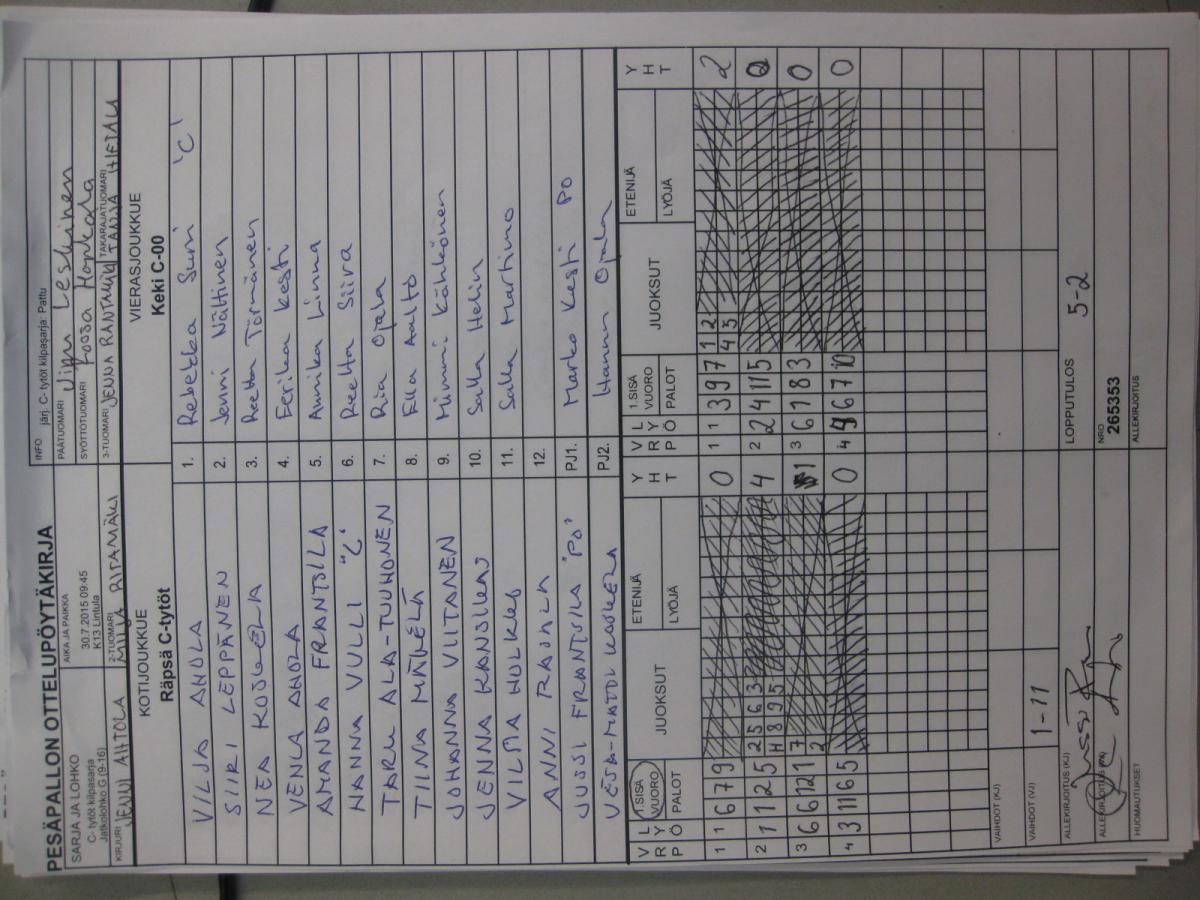 PESÄPALLON OTTELUPÖYTÄKIRJA
SARJA JA LOHKO
C- tytöt kilpasarja
Jatkolohko G (9-16)
AIKA JA PAIKKA
30.7.2015 09:45
K13 Lintula
INFO järj. C- tytöt kilpasarja: Pattu
PÄÄTUOMARI Leskinen
SYÖTTÖTUOMARI Roosa Honkala
KIRJURI JENNI AHTOLA
2-TUOMARI MILJA RITAMÄKI
3-TUOMARI JENNA RANTAMÄKI
TAKARAJATUOMARI TANJA HIETALA
KOTIJOUKKUE
Räpsä C-tytöt
VIERASJOUKKUE
Keki C-00
VILJA AHOLA 1. Rebekka Suni "C"
SIIRI LEPPÄNEN 2. Jenni Nättinen
NEA KOSKELA 3. Reetta Törmänen
VENLA AHOLA 4. Eerika Kesti
AMANDA FRANTSILA 5. Annika Linna
HANNA VULLI "C" 6. Reetta Siira
TARU ALA-TUUHONEN 7. Ria Ojala
TIINA MÄKELÄ 8. Ella Aalto
JOHANNA VIITANEN 9. Mimmi Kähkönen
JENNA KANSIKAS 10. Salla Helin
VILMA HOLKKO 11. Salla Martimo
ANNI RAJALA 12.
JUSSI FRANTSILA "PO" PJ1. Marko Kesti PO
VESA-MATTI KOSKELA PJ2. Hannu Ojala
V R P L Y Ö 1.SISÄ VUORO PALOT JUOKSUT ETENIJÄ LYÖJÄ Y H T V R P L Y Ö 1.SISÄ VUORO PALOT JUOKSUT ETENIJÄ LYÖJÄ Y H T
1 1 6 7 9 0 1 1 3 9 7 1 2 4 3 2
2 1 11 2 5 2 5 6 3 4 8 9 5 4 2 2 4 11 5 0
3 6 6 12 1 7 2 1 3 6 7 8 3 0
4 3 11 6 5 0 4 9 6 7 10 0
VAIHDOT (KJ)
VAIHDOT (VJ) 1-11
ALLEKIRJOITUS (KJ)
LOPPUTULOS 5-2
ALLEKIRJOITUS (VJ)
NRO
265353
HUOMAUTUKSET
ALLEKIRJOITUS